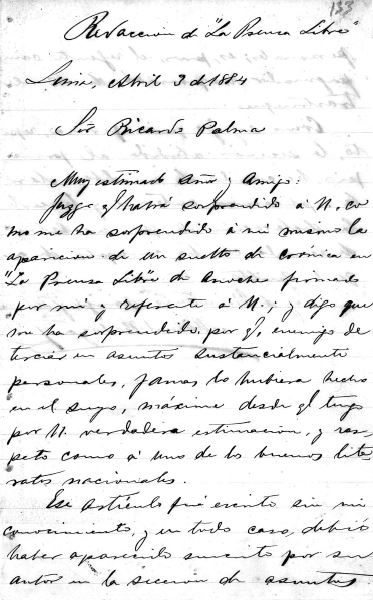 133
Redaccion de "La Prensa Libre"
Lima, Abril 3 de 1884
Sōr Ricardo Palma
Muy estimado Señor y Amigo:
Juzgo q/ habrá sorprendido á U. co
mo me ha sorprendido á mí mismo la
aparicion de un suelto de crónica en
"La Prensa Libre" de anoche firmado
por mí y referente á U.; y digo que
me ha sorprendido, por q/, enemigo de
terciar en asuntos sustancialmente
personales, jamas lo hubiera hecho
en el suyo, máxime desde q/ tengo
por U. verdadera estimacion, y res
peto como á uno de los buenos lite
ratos nacionales.
Ese artículo fué escrito sin mi
conocimiento, y en todo caso, debió
haber aparecido suscrito por su
autor en la seccion de asuntos